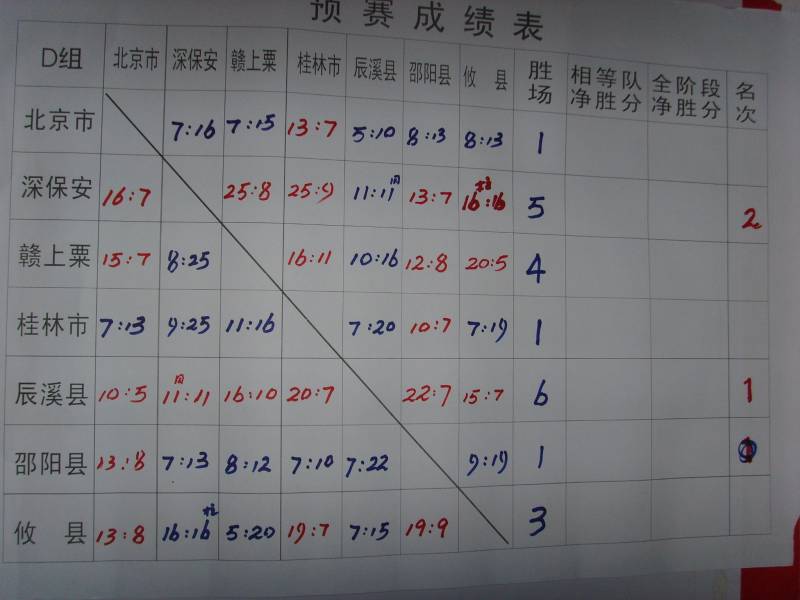 预赛成绩表
D组 北京市 深保安 赣上栗 桂林市 辰溪县 邵阳县 攸县 胜场 相等队净胜分 全阶段净胜分 名次
北京市 7:16 7:15 13:7 5:10 8:13 8:13 1
深保安 16:7 25:8 25:9 11:11 13:7 16:16 5 2
赣上栗 15:7 8:25 16:11 10:16 12:8 20:5 4
桂林市 7:13 9:25 11:16 7:20 10:7 7:19 1
辰溪县 10:5 11:11 16:10 20:7 22:7 15:7 6 1
邵阳县 13:8 7:13 8:12 7:10 7:22 9:19 1
攸县 13:8 16:16 5:20 19:7 7:15 19:9 3